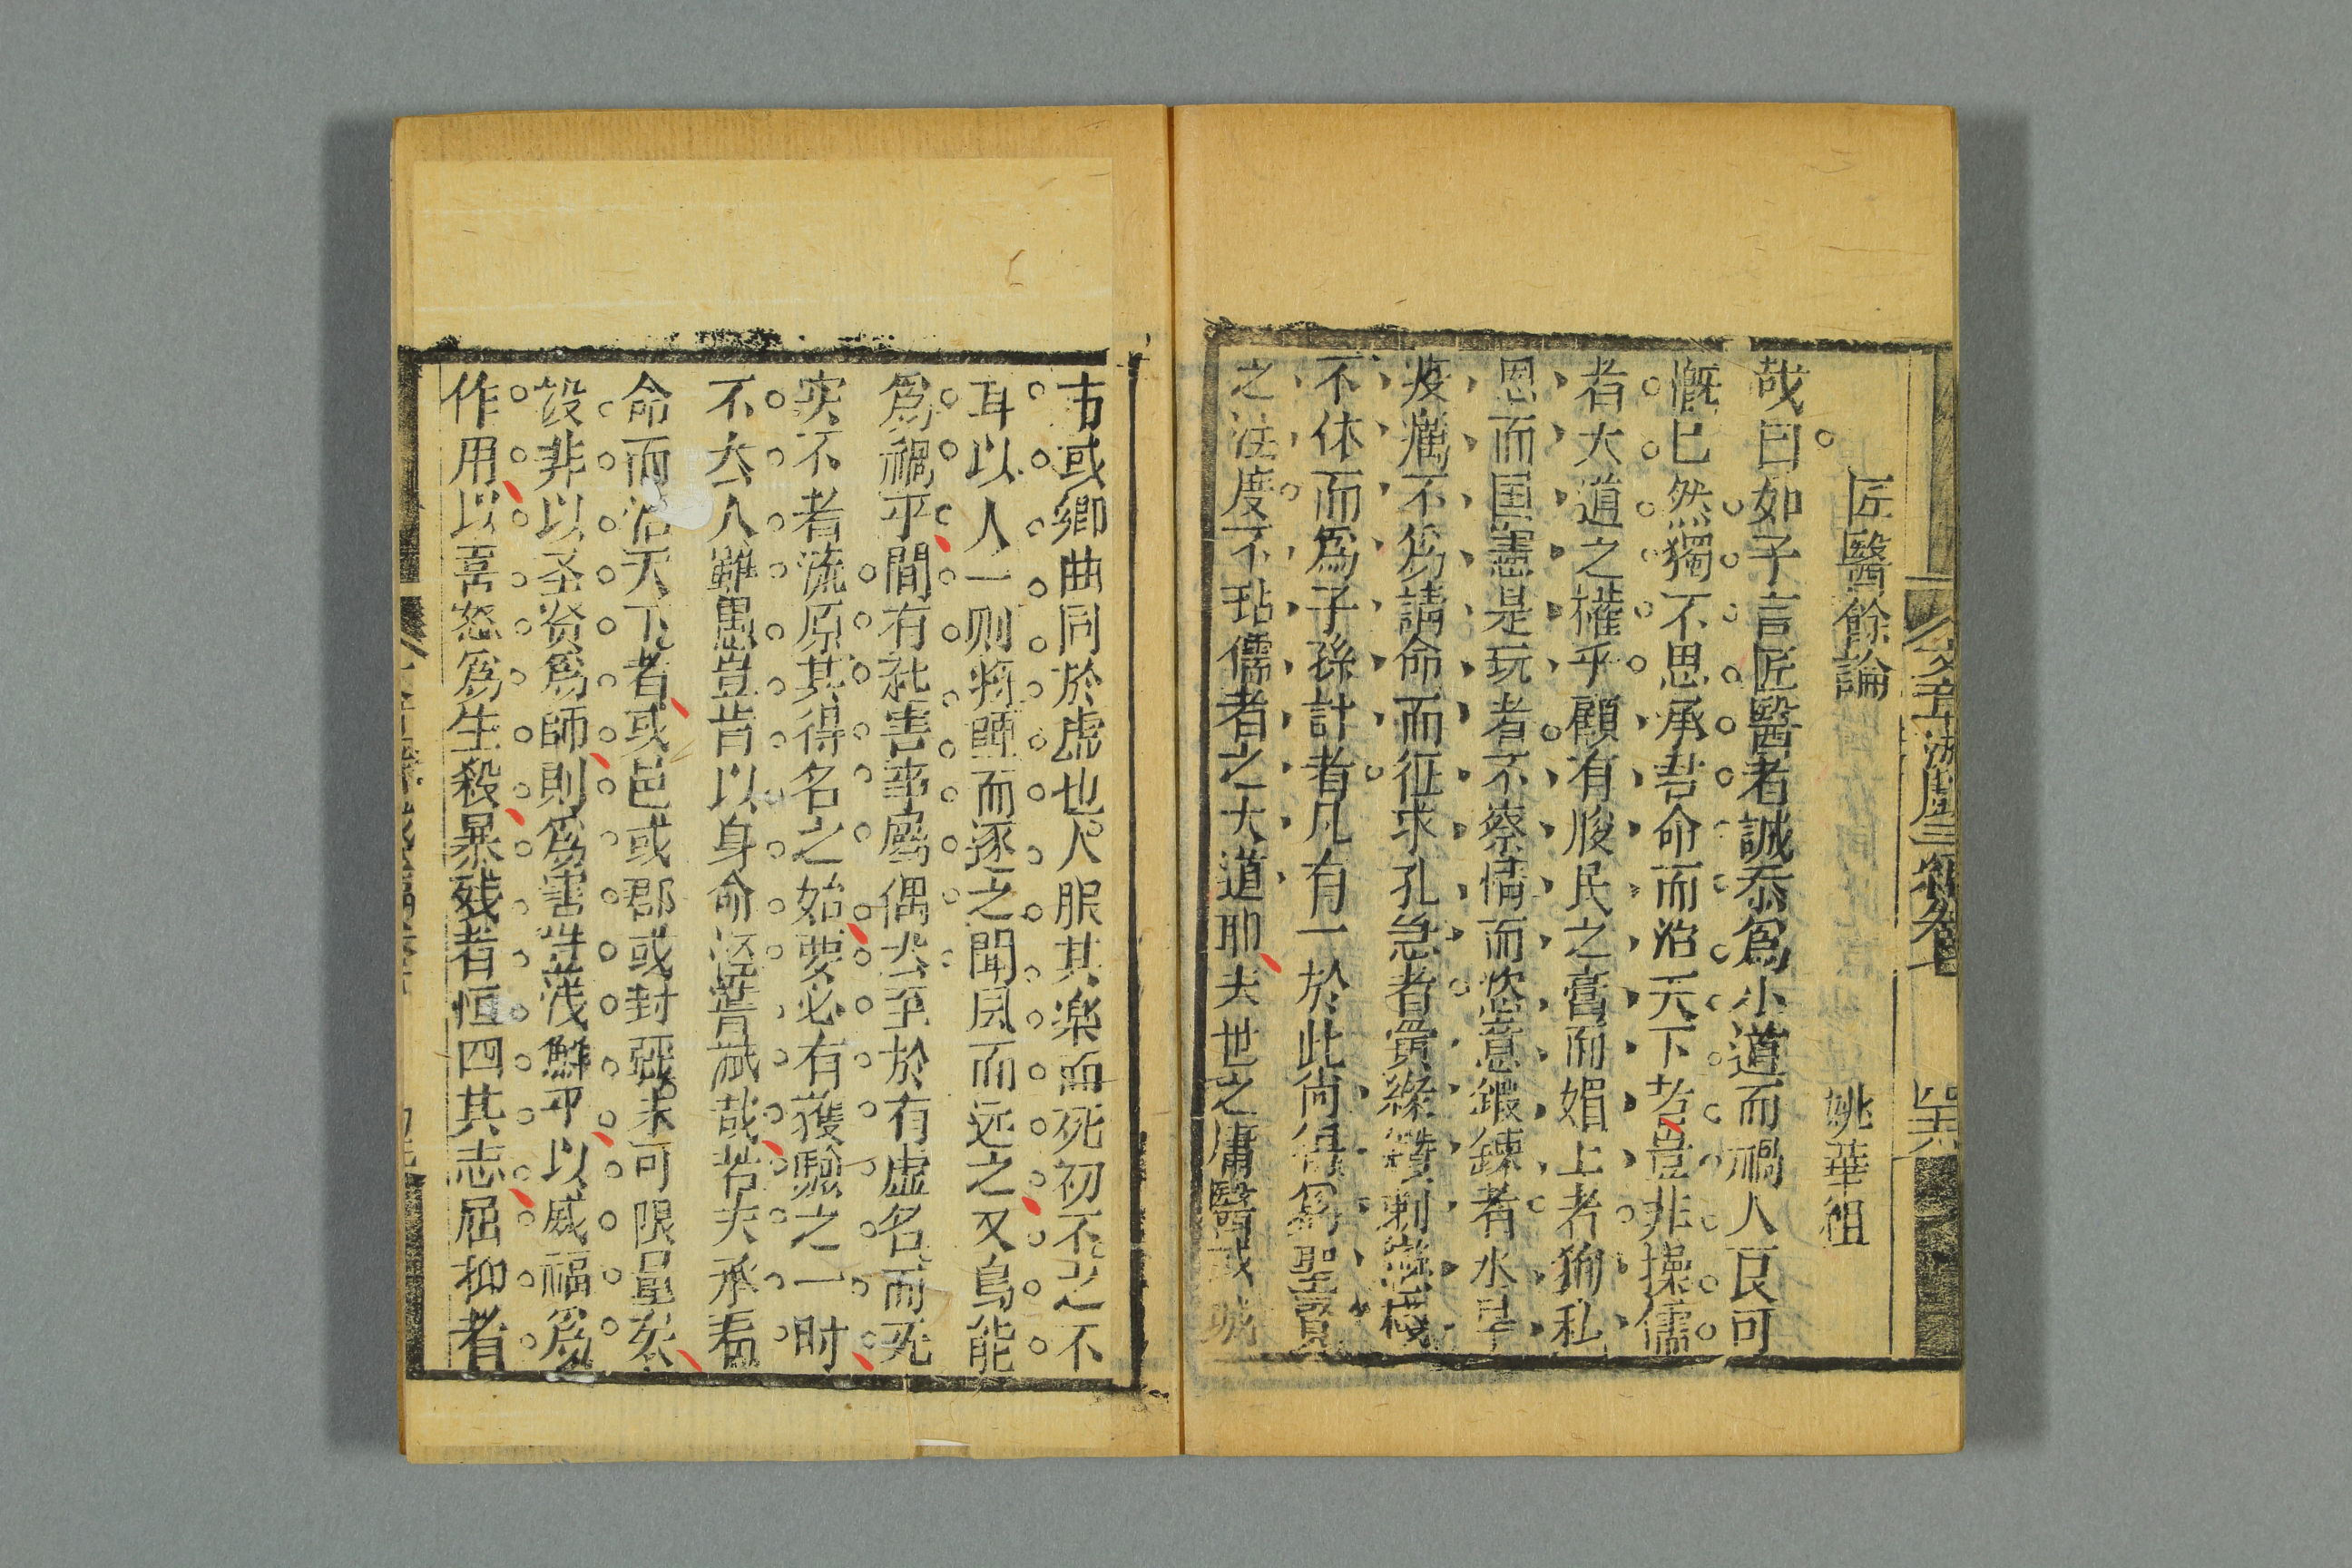 匠醫餘論　姚華祖
哉曰如子言匠醫者誠忝爲小道而禍人良可
慨已然獨不思承吾命而治天下者豈非操儒
者大道之權乎顧有朘民之膏而媚上者狥私
恩而国憲是玩者不察情而恣意鍛鍊者水旱
疫癘不爲請命而征求孔急者
不休而爲子孫計者凡有一於此尚得爲聖賢
之法度不玷儒者之大道耶夫世之庸醫或城
市或鄉曲同於虛也人服其藥而死初不之不
耳以人一则將踵而逐之聞風而远之又烏能
爲禍乎間有社害事屬偶尒至於有虛名而无
実不者流原其得名之始要必有獲驗之一时
不尒人雖愚豈肯以身命泾嘗㓕哉若夫承君
命而治天下者或邑或郡或封疆未可限量矣
設非以圣贤爲師則爲害豈浅鮮乎以威福爲
作用以喜怒爲生殺暴残者恒四其志屈抑者